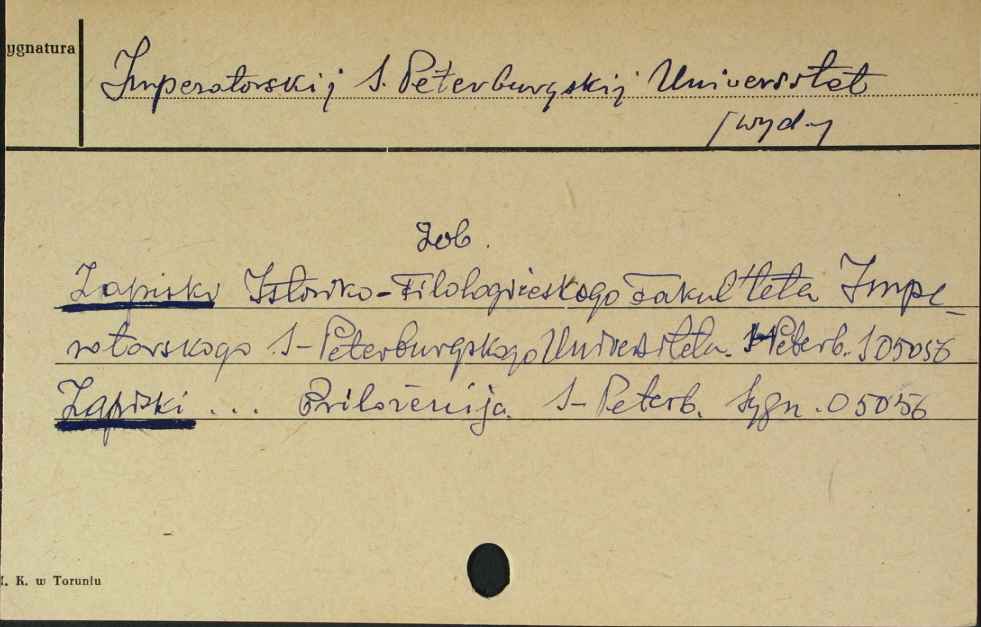 ygnatura
Imperatorskij S. Peterburgskij Universitet
[wyd.]
Zob.
Zapiski Istoriko-Filologičeskogo Fakul'teta Impe-
ratorskogo S-Peterburgskogo Universiteta. S-Peterb. S 05056
Zapiski ... Priloženija. S-Peterb. Sygn. 05056
K. w Toruniu